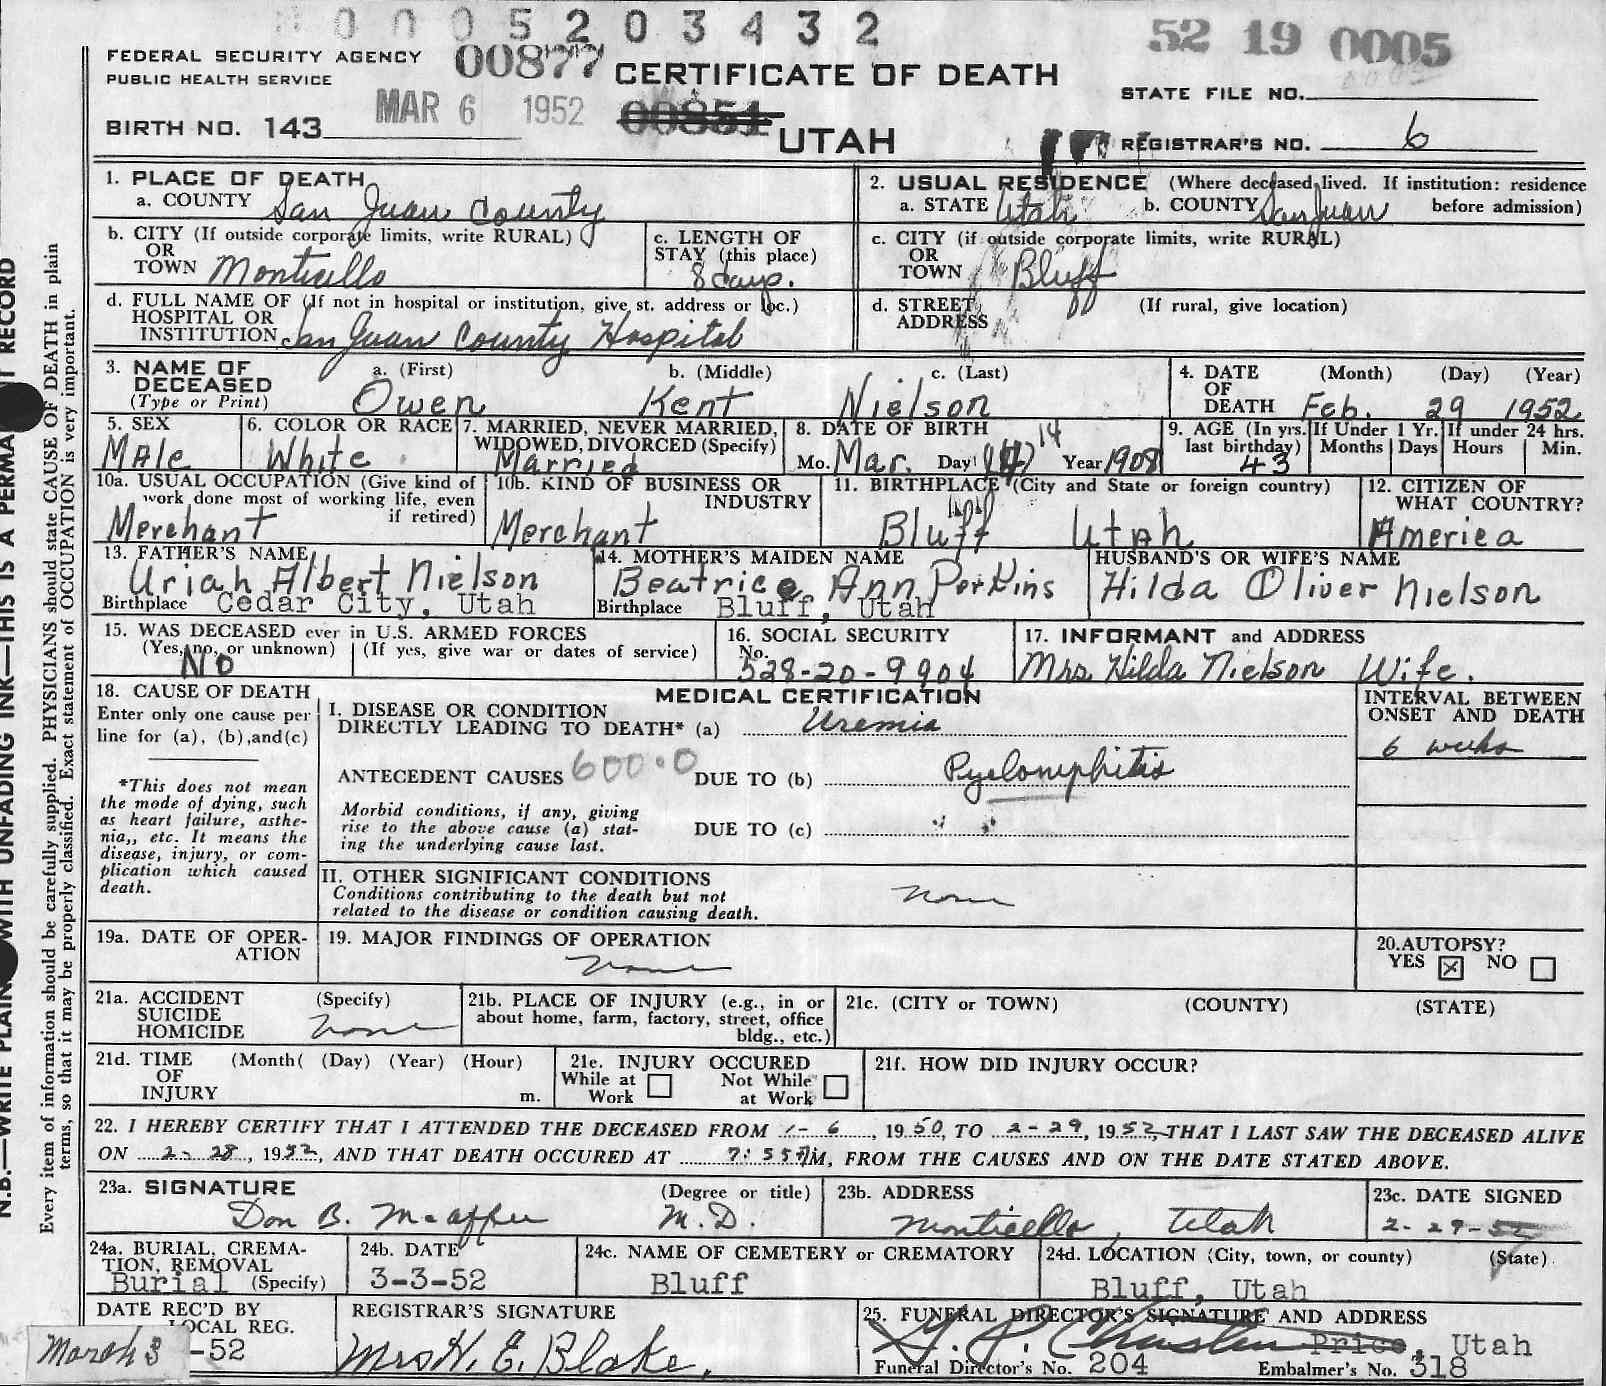 0005203432
FEDERAL SECURITY AGENCY 00877 CERTIFICATE OF DEATH 52 19 0005
PUBLIC HEALTH SERVICE
STATE FILE NO.
BIRTH NO. 143 MAR 6 1952 00851 UTAH REGISTRAR'S NO. 6
1. PLACE OF DEATH
a. COUNTY San Juan County
2. USUAL RESIDENCE (Where deceased lived. If institution: residence before admission)
a. STATE Utah b. COUNTY San Juan
b. CITY (If outside corporate limits, write RURAL)
OR
TOWN Monticello
c. LENGTH OF
STAY (this place)
8 days.
c. CITY (if outside corporate limits, write RURAL)
OR
TOWN Bluff
d. FULL NAME OF (If not in hospital or institution, give st. address or loc.)
HOSPITAL OR
INSTITUTION San Juan County Hospital
d. STREET (If rural, give location)
ADDRESS
3. NAME OF a. (First) b. (Middle) c. (Last)
DECEASED
(Type or Print) Owen Kent Nielson
4. DATE (Month) (Day) (Year)
OF
DEATH Feb. 29 1952
5. SEX
Male
6. COLOR OR RACE
White
7. MARRIED, NEVER MARRIED,
WIDOWED, DIVORCED (Specify)
Married
8. DATE OF BIRTH 14
Mo. Mar. Day Year 1908
9. AGE (In yrs. last birthday) 43
If Under 1 Yr. Months Days
If under 24 hrs. Hours Min.
10a. USUAL OCCUPATION (Give kind of
work done most of working life, even
if retired)
Merchant
10b. KIND OF BUSINESS OR
INDUSTRY
Merchant
11. BIRTHPLACE (City and State or foreign country)
Bluff Utah
12. CITIZEN OF
WHAT COUNTRY?
America
13. FATHER'S NAME
Uriah Albert Nielson
Birthplace Cedar City, Utah
14. MOTHER'S MAIDEN NAME
Beatrice Ann Perkins
Birthplace Bluff, Utah
HUSBAND'S OR WIFE'S NAME
Hilda Oliver Nielson
15. WAS DECEASED ever in U.S. ARMED FORCES
(Yes, no, or unknown) (If yes, give war or dates of service)
NO
16. SOCIAL SECURITY
No.
528-20-9904
17. INFORMANT and ADDRESS
Mrs. Hilda Nielson Wife.
18. CAUSE OF DEATH
Enter only one cause per
line for (a), (b), and (c)
*This does not mean
the mode of dying, such
as heart failure, asthe-
nia,, etc. It means the
disease, injury, or com-
plication which caused
death.
MEDICAL CERTIFICATION
I. DISEASE OR CONDITION
DIRECTLY LEADING TO DEATH* (a) Uremia
ANTECEDENT CAUSES 600.0 DUE TO (b) Pyelonephitis
Morbid conditions, if any, giving
rise to the above cause (a) stat-
ing the underlying cause last.
DUE TO (c)
INTERVAL BETWEEN
ONSET AND DEATH
6 weeks
II. OTHER SIGNIFICANT CONDITIONS
Conditions contributing to the death but not
related to the disease or condition causing death.
None
19a. DATE OF OPER-
ATION
19. MAJOR FINDINGS OF OPERATION
None
20. AUTOPSY?
YES ☒ NO ☐
21a. ACCIDENT (Specify)
SUICIDE
HOMICIDE None
21b. PLACE OF INJURY (e.g., in or
about home, farm, factory, street, office
bldg., etc.)
21c. (CITY or TOWN) (COUNTY) (STATE)
21d. TIME (Month( (Day) (Year) (Hour)
OF
INJURY m.
21e. INJURY OCCURED
While at Work ☐ Not While at Work ☐
21f. HOW DID INJURY OCCUR?
22. I HEREBY CERTIFY THAT I ATTENDED THE DECEASED FROM 1-6, 1950, TO 2-29, 1952, THAT I LAST SAW THE DECEASED ALIVE
ON 2-28, 1952, AND THAT DEATH OCCURED AT 7:55 M, FROM THE CAUSES AND ON THE DATE STATED ABOVE.
23a. SIGNATURE (Degree or title)
Don B. McAffee M.D.
23b. ADDRESS
Monticello, Utah
23c. DATE SIGNED
2-29-52
24a. BURIAL, CREMA-
TION, REMOVAL
Burial (Specify)
24b. DATE
3-3-52
24c. NAME OF CEMETERY or CREMATORY
Bluff
24d. LOCATION (City, town, or county) (State)
Bluff, Utah
DATE REC'D BY
LOCAL REG.
March 3 -52
REGISTRAR'S SIGNATURE
Mrs H. E. Blake.
25. FUNERAL DIRECTOR'S SIGNATURE AND ADDRESS
Price, Utah
Funeral Director's No. 204 Embalmer's No. 318
N.B.—WRITE PLAIN WITH UNFADING INK—THIS IS A PERMA T RECORD
Every item of information should be carefully supplied. PHYSICIANS should state CAUSE OF DEATH in plain
terms, so that it may be properly classified. Exact statement of OCCUPATION is very important.